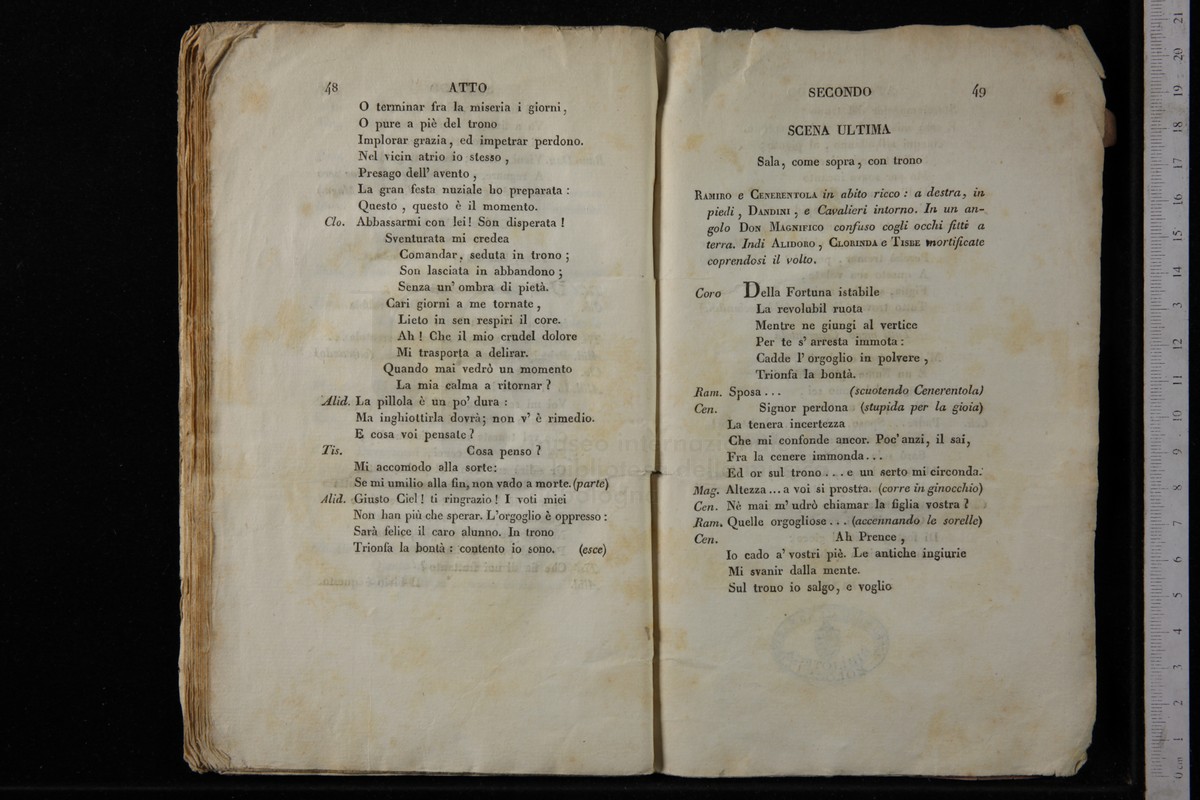 48 ATTO
O terminar fra la miseria i giorni,
O pure a piè del trono
Implorar grazia, ed impetrar perdono.
Nel vicin atrio io stesso,
Presago dell' avento,
La gran festa nuziale ho preparata:
Questo, questo è il momento.
Clo. Abbassarmi con lei! Son disperata!
Sventurata mi credea
Comandar, seduta in trono;
Son lasciata in abbandono;
Senza un' ombra di pietà.
Cari giorni a me tornate,
Lieto in sen respiri il core.
Ah! Che il mio crudel dolore
Mi trasporta a delirar.
Quando mai vedrò un momento
La mia calma a ritornar?
Alid. La pillola è un po' dura:
Ma inghiottirla dovrà; non v' è rimedio.
E cosa voi pensate?
Tis. Cosa penso?
Mi accomodo alla sorte:
Se mi umilio alla fin, non vado a morte. (parte)
Alid. Giusto Ciel! ti ringrazio! I voti miei
Non han più che sperar. L'orgoglio è oppresso:
Sarà felice il caro alunno. In trono
Trionfa la bontà: contento io sono. (esce)
SECONDO 49
SCENA ULTIMA
Sala, come sopra, con trono
RAMIRO e CENERENTOLA in abito ricco: a destra, in
piedi, DANDINI, e Cavalieri intorno. In un an-
golo DON MAGNIFICO confuso cogli occhi fitti a
terra. Indi ALIDORO, CLORINDA e TISBE mortificate
coprendosi il volto.
Coro Della Fortuna istabile
La revolubil ruota
Mentre ne giungi al vertice
Per te s' arresta immota:
Cadde l' orgoglio in polvere,
Trionfa la bontà.
Ram. Sposa... (scuotendo Cenerentola)
Cen. Signor perdona (stupida per la gioia)
La tenera incertezza
Che mi confonde ancor. Poc' anzi, il sai,
Fra la cenere immonda...
Ed or sul trono... e un serto mi circonda.
Mag. Altezza... a voi si prostra. (corre in ginocchio)
Cen. Nè mai m' udrò chiamar la figlia vostra?
Ram. Quelle orgogliose... (accennando le sorelle)
Cen. Ah Prence,
Io cado a' vostri piè. Le antiche ingiurie
Mi svanir dalla mente.
Sul trono io salgo, e voglio